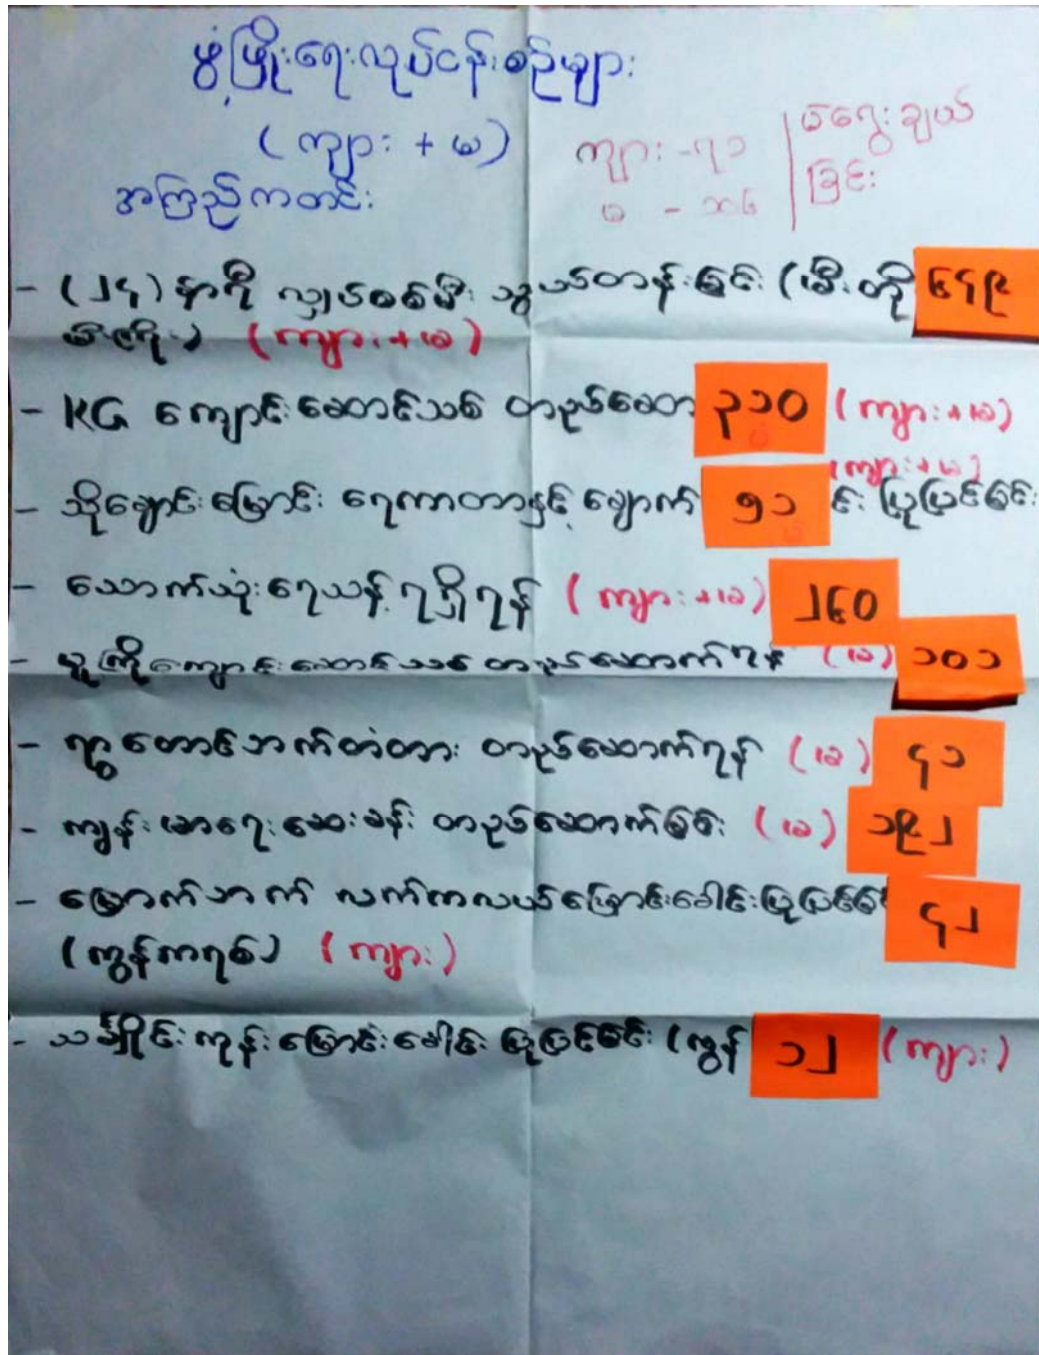 ဖွံ့ဖြိုးရေးလုပ်ငန်းစဉ်များ
(ကျား + မ)
ကျား - ၇၁ မဲရွေးချယ်
မ - ၁၁၆ ခြင်း
အကြည်ကတင်း
- (၂၄) နာရီ လျှပ်စစ်မီး သွယ်တန်းခြင်း (မီးတို ၆၄၉
မီးကြိုး) (ကျား + မ)
- KG ကျောင်းဆောင်သစ် တည်ဆော ၃၁၀ (ကျား + မ)
(ကျား + မ)
- သိုချောင်းမြောင်း ရေကာတာနှင့် မျောက် ၅၁ င်း ပြုပြင်ခြင်း
- သောက်သုံးရေသန့် ရရှိရန် (ကျား + မ) ၂၆၀
- မူကြိုကျောင်းဆောင်သစ် တည်ဆောက်ရန် (မ) ၁၀၁
- ရွာတောင်ဘက်တံတား တည်ဆောက်ရန် (မ) ၄၁
- ကျန်းမာရေးဆေးခန်း တည်ဆောက်ခြင်း (မ) ၁၉၂
- မြောက်ဘက် လက်ကလယ်မြောင်းခေါင်းပြုပြင် ၄၂
(ကွန်ကရစ်) (ကျား)
- ကုန်းမြောင်းခေါင်း ပြုပြင်ခြင်း (ကွန် ၁၂ (ကျား)